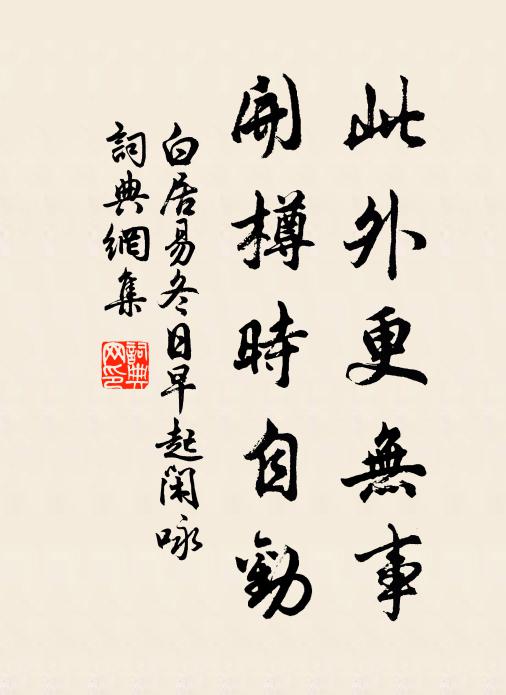 此外更無事
開樽時自勸
白居易冬日早起閑咏
詞典網集
詞典
网印